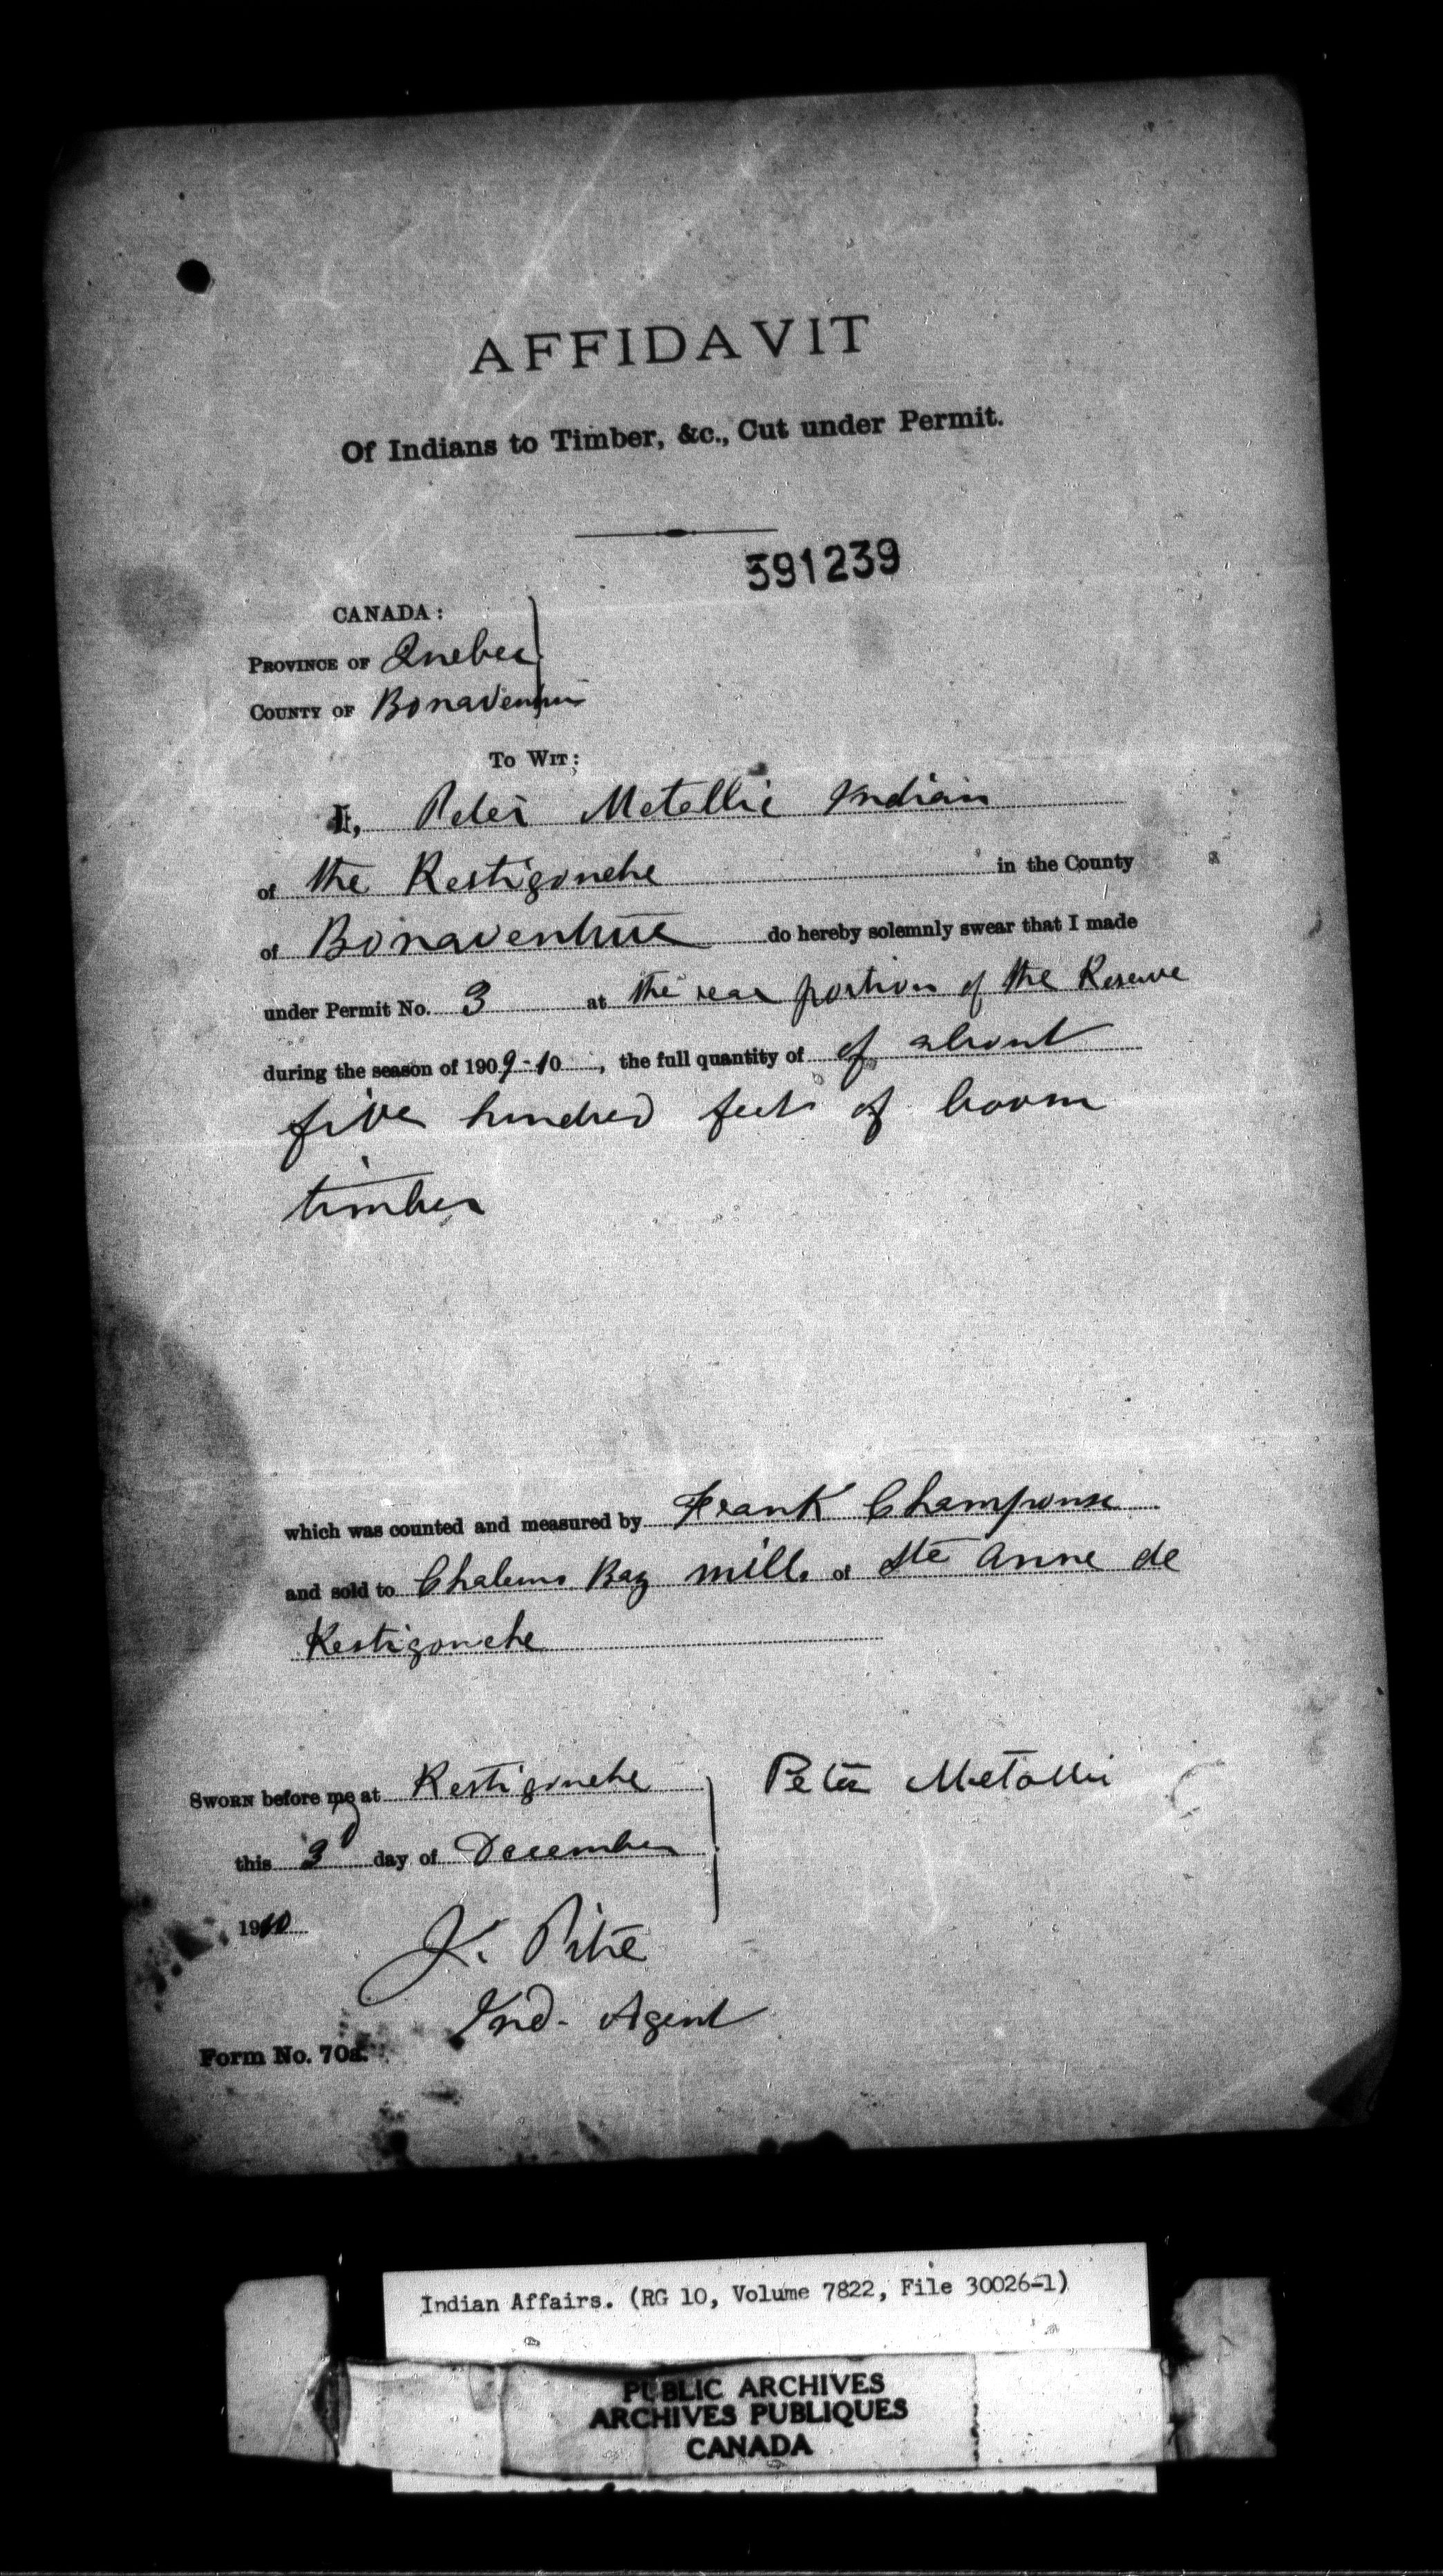 AFFIDAVIT
Of Indians to Timber, &c., Cut under Permit.
391239
CANADA:
PROVINCE OF Quebec
COUNTY OF Bonaventure
TO WIT:
I, Peter Metallic Indian
of the Restigouche in the County
of Bonaventure do hereby solemnly swear that I made
under Permit No. 3 at the rear portion of the Reserve
during the season of 1909-10, the full quantity of of about
five hundred feet of boom
timber
which was counted and measured by Frank
and sold to Chaleurs Bay mills of Ste Anne de
Restigouche
SWORN before me at Restigouche
Peter Metallic
this 3d day of December
1910
J. Pitre
Ind. Agent
Form No. 70a.
Indian Affairs. (RG 10, Volume 7822, File 30026-1)
PUBLIC ARCHIVES
ARCHIVES PUBLIQUES
CANADA